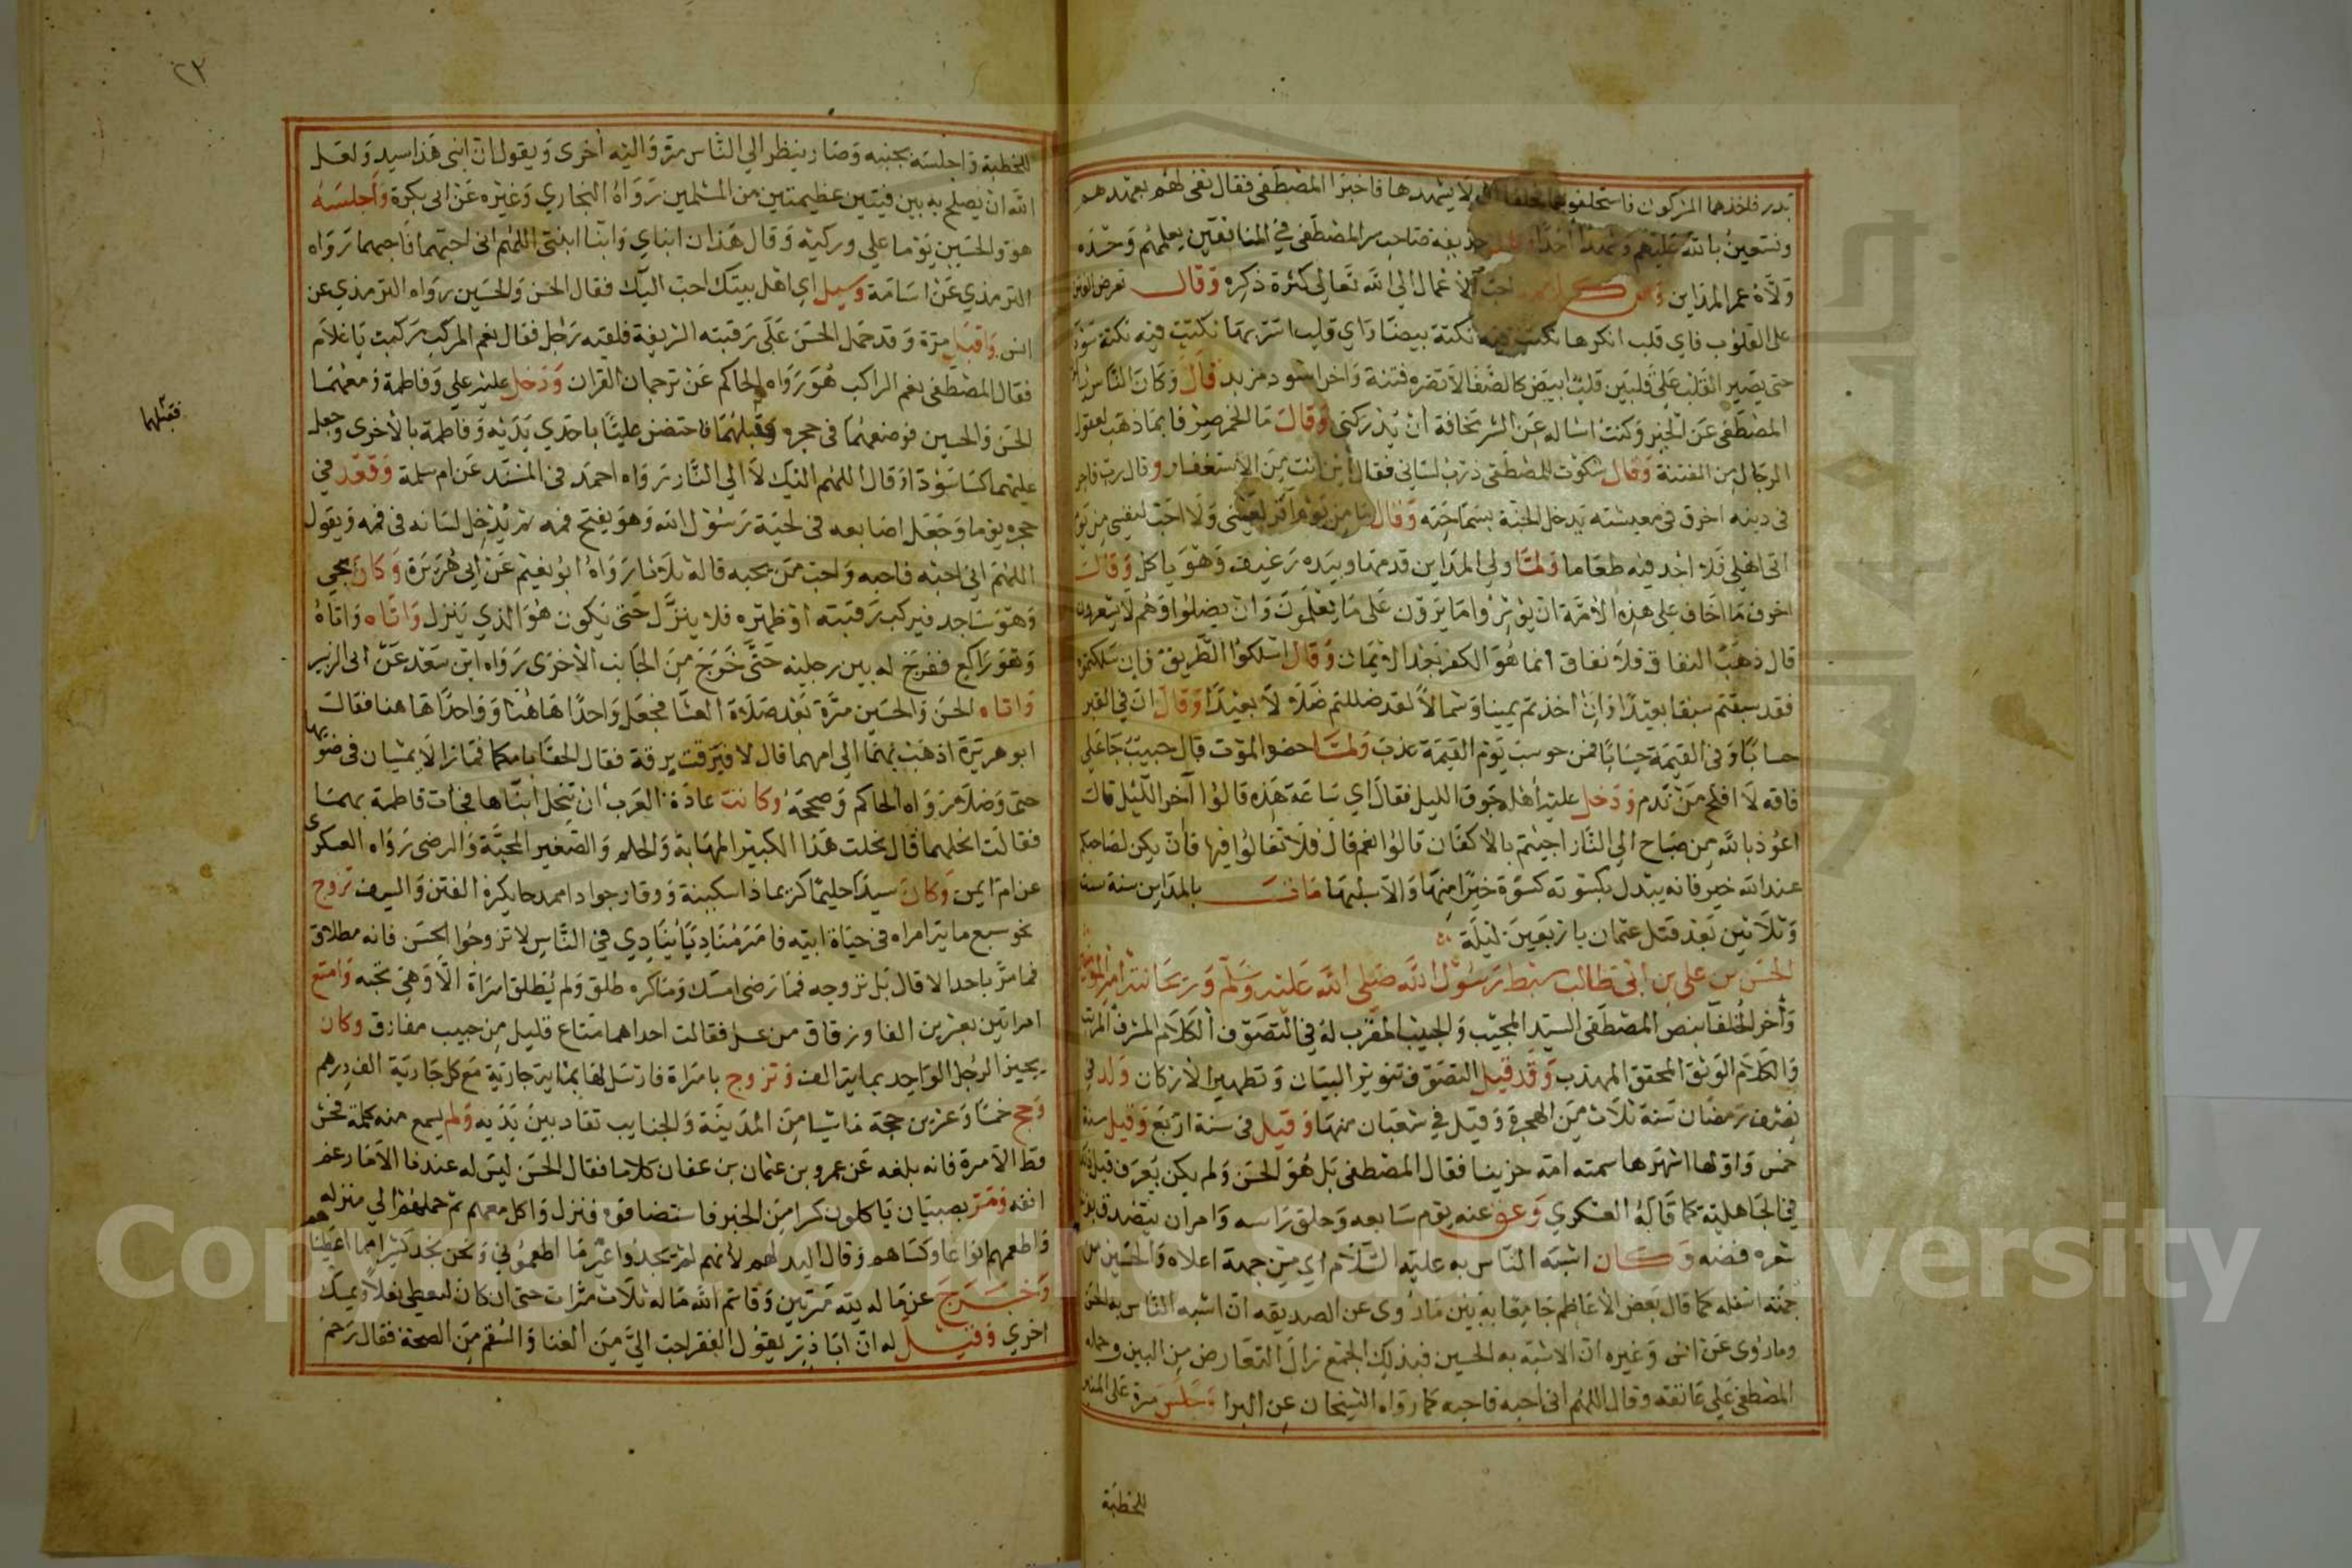 بدر فاخذهما المشركون فاستحلفوهما فحلفا لهم لا يشهدها فاخبرا المصطفى فقال نفي لهم بعهدهم
ونستعين بالله عليهم وشهد احدا حذيفة صاحب سر المصطفى في المنافقين يعلمهم وحده
ولاه عمر المداين احب الاعمال الى الله تعالى كثرة ذكره وقال تعرض الفتن
على القلوب فاي قلب انكرها نكتت فيه نكتة بيضا واي قلب اشربها نكتت فيه نكتة سودا
حتى يصير القلب على قلبين قلب ابيض كالصفا لا تضره فتنة واخر اسود مزبد قال وكان الناس
المصطفى عن الخير وكنت اساله عن الشر مخافة ان يدركني وقال ما الخمر صرفا بما ذهب لعقول
الرجال من الفتنة وقال شكوت للمصطفى ذرب لساني فقال اين انت من الاستغفار وقال رب فاجر
في دينه اخرق في معيشته يدخل الجنة بسماحته وقال ما من يوم اقر لعيني ولا احب لنفسي من يوم
اتى اهلي فلا اجد فيه طعاما ولما ولي المداين قدمها وبيده رغيف وهو ياكل وقال
اخوف ما اخاف على هذه الامة ان يؤثروا ما يرون على ما يعلمون وان يضلوا وهم لا يشعرون
قال ذهب النفاق فلا نفاق انما هو الكفر بعد الايمان وقال اسلكوا الطريق فان سلكتموه
فقد سبقتم سبقا بعيدا وان اخذتم يمينا وشمالا لقد ضللتم ضلالا بعيدا وقال ان في القبر
حسابا وفي القيمة حسابا فمن حوسب يوم القيمة عذب ولما حضر الموت قال حبيب جا على
فاقه لا افلح من ندم ودخل عليه اهله جوف الليل فقال اي ساعة هذه قالوا آخر الليل قال
اعوذ بالله من صباح الى النار اجيتم بالاكفان قالوا نعم قال فلا تغالوا فيها فان يكن لصاحبكم
عند الله خير فانه يبدل بكسوته كسوة خيرا منها والا سلبها مات بالمداين سنة ست
وثلاثين بعد قتل عثمان باربعين ليلة
الحسن بن علي بن ابي طالب سبط رسول الله صلى الله عليه وسلم وريحانته امير المؤمنين
وآخر الخلفا بنص المصطفى السيد المجيب والحبيب المقرب له في التصوف الكلام المشرف المرتب
والكلام الوثق المحقق المهذب وقد قيل التصوف تنوير البيان وتطهير الاركان ولد في
نصف رمضان سنة ثلاث من الهجرة وقيل في شعبان منها وقيل في سنة اربع وقيل سنة
خمس واولها اشهرها سمته امه حربنا فقال المصطفى بل هو الحسن ولم يكن يعرف قبل ذلك
في الجاهلية كما قاله العسكري وعق عنه يوم سابعه وحلق راسه وامر ان يتصدق بزنة
شعره فضه وكان اشبه الناس به عليه السلام اي من جهة اعلاه والحسين من
جهة اسفله كما قال بعض الاعاظم جامعا به بين ما روى عن الصديقه ان اشبه الناس به الحسن
وما روى عن انس وغيره ان الاشبه به الحسين فبذلك الجمع زال التعارض من البين وحمله
المصطفى على عاتقه وقال اللهم اني احبه فاحبه كما رواه الشيخان عن البرا وجلس مرة على المنبر
للخطبة
٢٣
للخطبة واجلسه بجنبه وصار ينظر الى الناس مرة واليه اخرى ويقول ان ابني هذا سيد ولعل
الله ان يصلح به بين فيتين عظيمتين من المسلمين رواه البخاري وغيره عن ابي بكرة واجلسه
هو والحسين يوما على وركيه وقال هذان ابناي وابنا ابنتي اللهم اني احبهما فاحبهما رواه
الترمذي عن اسامة وسيل اي اهل بيتك احب اليك فقال الحسن والحسين رواه الترمذي عن
انس واقبل مرة وقد حمل الحسن على رقبته الشريفة فلقيه رجل فقال نعم المركب ركبت يا غلام
فقال المصطفى نعم الراكب هو رواه الحاكم عن ترجمان القران ودخل عليه علي وفاطمة ومعهما
الحسن والحسين فوضعهما في حجره وقبلهما فاحتضن عليا باحدي يديه وفاطمة بالاخرى وجعل
فقبلهما
عليهما كسا سودآ وقال اللهم اليك لا الي النار رواه احمد في المسند عن ام سلمة وقعد في
حجره يوما وجعل اصابعه في لحية رسول الله وهو يفتح فمه ثم يدخل لسانه في فمه ويقول
اللهم اني احبه فاحبه واحب من يحبه قاله ثلاثا رواه ابو نعيم عن ابي هريرة وكان يجي
وهو ساجد فيركب رقبته او ظهره فلا ينزل حتى يكون هو الذي ينزل واتاه واتاه
وهو راكع ففرج له بين رجليه حتى خرج من الجانب الاخرى رواه ابن سعد عن ابي الزبير
واتاه الحسن والحسين مرة بعد صلاة العشا فجعل واحدا هاهنا وواحدا هاهنا فقال
ابو هريرة اذهب بهما الى امهما قال لا فبرقت برقة فقال الحقا بامكما فما زالا يمشيان في ضوئها
حتى وصلا رواه الحاكم وصححه وكانت عادة العرب ان تنحل ابناها فجات فاطمة بهما
فقالت انحلهما قال نحلت هذا الكبير المهابة والحلم والصغير المحبة والرضى رواه العسكري
عن ام ايمن وكان سيدا حليما كريما ذا سكينة ووقار جوادا ممدحا يكره الفتن والسيف تزوج
نحو سبع ماية امراه في حياة ابيه فامر مناديا ينادي في الناس لا تزوجوا الحسن فانه مطلاق
فما مر باحد الا قال بل نزوجه فما رضى امسك وما كره طلق ولم يطلق امراة الا وهي تحبه وامتع
امراتين بعشرين الفا وزقاق من عسل فقالت احداهما متاع قليل من حبيب مفارق وكان
يجيز الرجل الواحد بماية الف وتزوج بامراة فارسل لها بماية جارية مع كل جارية الف درهم
وحج خمسا وعشرين حجة ماشيا من المدينة والجنايب تقاد بين يديه ولم يسمع منه كلمة فحش
قط الا مرة فانه بلغه عن عمرو بن عثمان بن عفان كلاما فقال الحسن ليس له عندنا الا ما رغم
انفه ومر بصبيان ياكلون كسرا من الخبز فاستضافوه فنزل واكل معهم ثم حملهم الي منزله
واطعمهم انواعا وكساهم وقال اليد لهم لانهم لم يجدوا غير ما اطعموني ونحن نجد كثيرا مما اعطيناهم
وخرج عن ماله لله مرتين وقاسم الله ماله ثلاث مرات حتى ان كان ليعطي نعلا ويمسك
اخري وقيل له ان ابا ذر يقول الفقر احب الي من الغنا والسقم من الصحة فقال رحم
Copyright © King Saud University